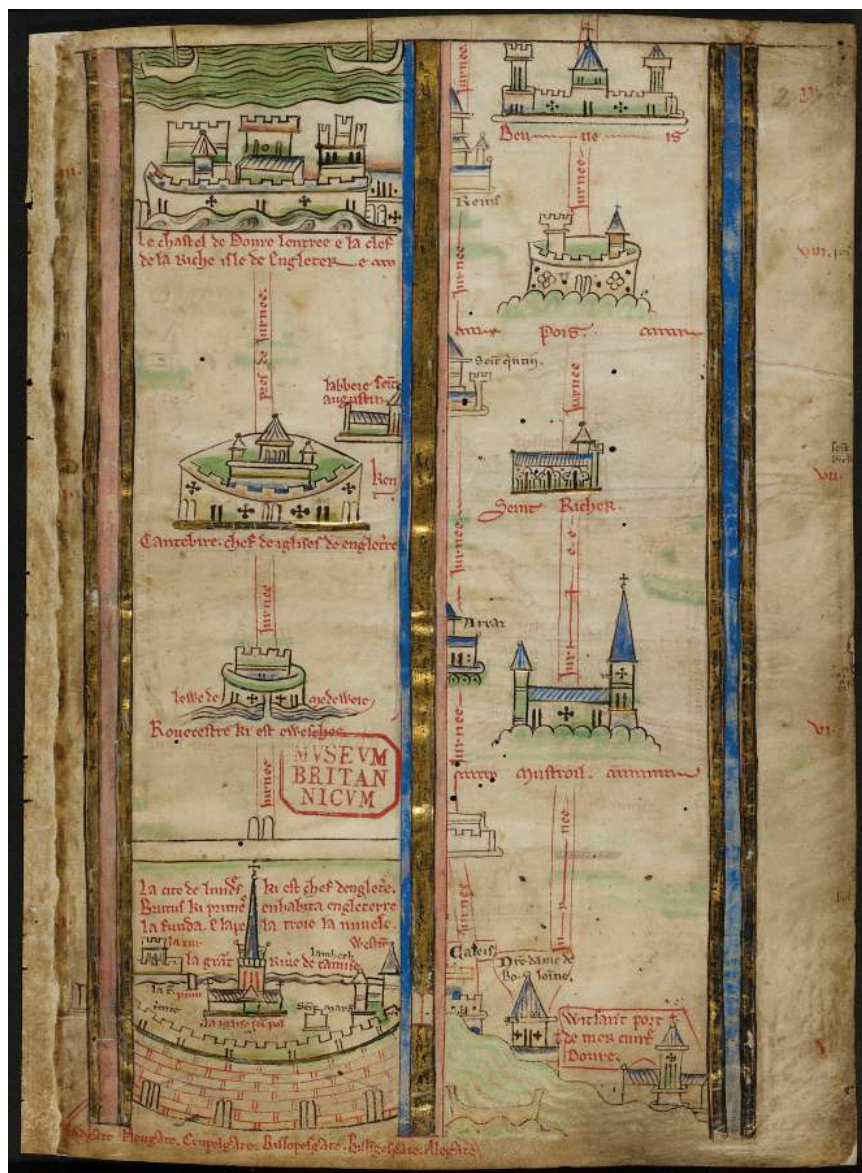 Le chastel de Doure lentree e la clef
de la riche isle de Engleter e
pres de Jurnee
labbeie seint
augustin
Ken
Cantebire. chef de iglises de engletere
Jurnee
lewe de medeweie
Rouecestre ki est eveschee
Jurnee
MVSEVM
BRITAN
NICVM
La cite de lundres ki est chef dengletere.
Brutus ki primes enhabita engleterre
la funda. E lapela troie la nuvele.
la tur
la grant Riue de tamise
lambeth
Westm
punt
la iglise sein pol
Bissopesgate. Billingesgate. Allegate
Jurnee
Beu ne is
Reins
Jurnee
Jurnee
Pois
Seint quintin.
Jurnee
Jurnee
Seint Richer.
Jurnee
Jurnee
Arraz
Jurnee
Mustroil.
Jurnee
Jurnee
Caleis
Nre dame de
Boloine.
Witsant port
de mer cunt
Doure.
VIII
VII.
VI.